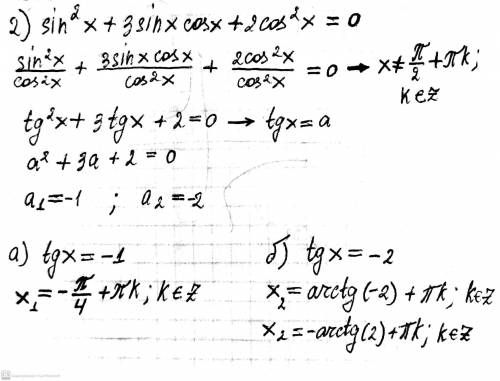 2) sin²x + 3sinx cosx + 2cos²x = 0
sin²x/cos²x + 3sinx cosx/cos²x + 2cos²x/cos²x = 0 → x ≠ π/2 + πk;
k∈Z
tg²x + 3tgx + 2 = 0 → tgx = a
a² + 3a + 2 = 0
a₁ = -1 ; a₂ = -2
а) tgx = -1
x₁ = -π/4 + πk; k∈Z
б) tgx = -2
x₂ = arctg(-2) + πk; k∈Z
x₂ = -arctg(2) + πk; k∈Z